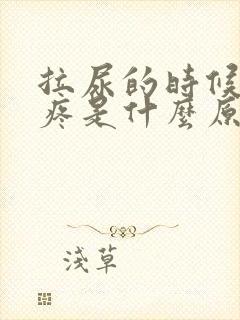 拉尿的時候
疼是什麼原
淺草